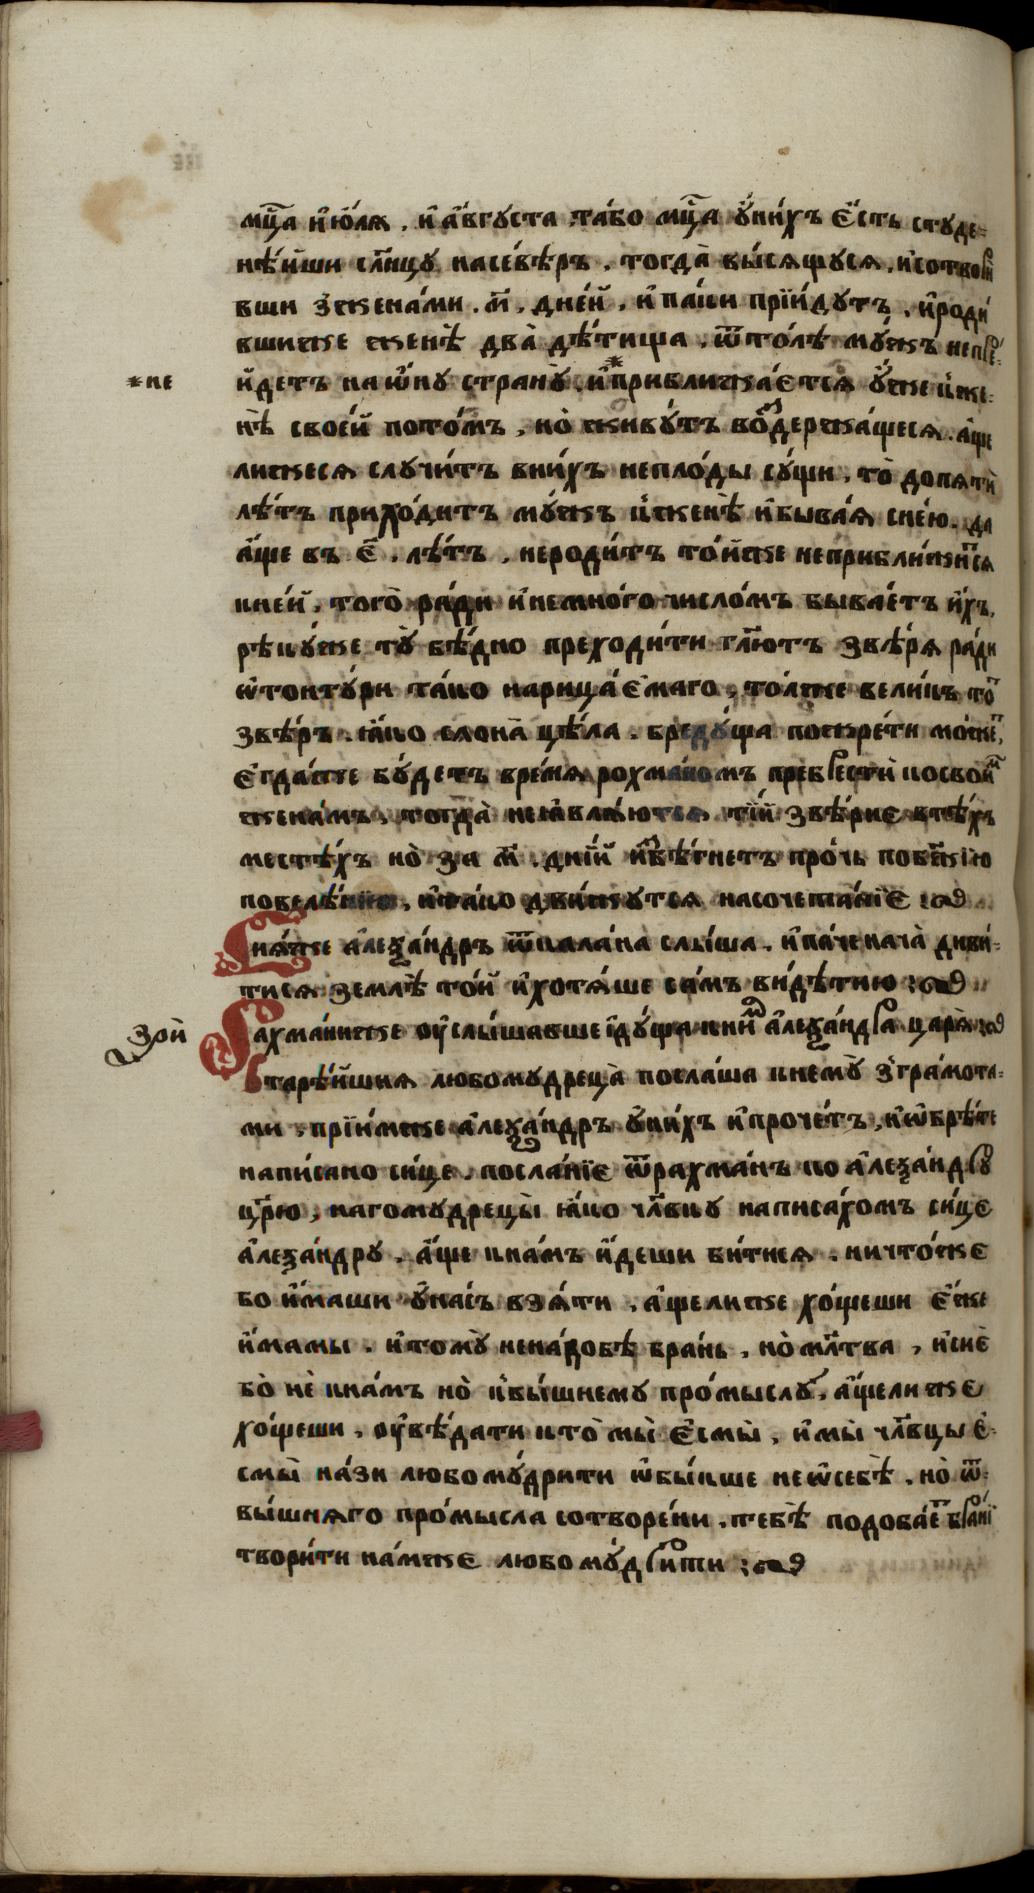 мц҃а и҆ ию́лѧ . и҆ а҆́вгуста . та́бо мц҃а ᲂу҆ни́хъ є҆́сть студе=
нѣ́йши сл҃нцу насе́вѣръ . тогда̀ высѧ́щусѧ . и҆сотвори
вши з̾жена́ми . м҃ . дне́й . и҆ па́ки прїи́дутъ . и҆роди́
вшижже женѣ̀ два̀ дѣ́тища . ѿто́лѣ му́жъ непре=
*не и҆́детъ на ѡ҆́ну страну̀ . и҆ *приближа́єтсѧ ᲂу҆́же к̾же=
нѣ̀ своє́й пото́мъ , но̀ живу́тъ во́здержа́щесѧ . а҆́ще
лижесѧ случи́тъ вни́хъ непло́ды су́щи , то̀ допѧтѝ
лѣ́тъ прихо́дитъ му́жъ к̾женѣ̀ и҆быва́ѧ снє́ю . да
а҆́ще въ є҃ . лѣ́тъ , нероди́тъ то́йже неприбли́житсѧ
кне́й , того̀ ра́ди и҆немно́го число́мъ быва́етъ и҆́хъ ,
рѣку́же ту̀ бѣ́дно преходи́ти гл҃ютъ звѣ́рѧ ра́ди
ѡ҆тонту́ри та́ко нарица́є҆маго , то́лже вели́къ то́
звѣ́ръ . ꙗ҆́ко слона̀ цѣ́ла . бреду́ща пожре́ти може́т ,
є҆гда́же бу́детъ вре́мѧ рохма́комъ пребрестѝ ко свои́м
жена́мъ , тогда̀ неꙗ҆влѧ́ютсѧ ті́и звѣ́рие втѣ́хъ
местѣ́хъ но̀ за м҃ . дні́й и҆збѣ́гнетъ про́чь побж҃їю
повелѣ́нию , и҆та́ко дви́жутсѧ насочета́нїє :~
Сиѧ́же а҆леѯа́ндръ ѿкала́на слы́ша . и҆па́че нача̀ диви́=
тисѧ землѣ̀ то́й и҆хотѧ́ше са́мъ ви́дѣтию :~
зрѝ Рахма́ниже ᲂу҆слы́шавше і҆ду́ща кни́м а҆леѯа́ндра царѧ̀ :~
старѣ́йшиѧ любомудреца̀ посла́ша кнему̀ з̾гра́мота=
ми , прїи́мже а҆леѯа́ндръ ᲂу҆ни́хъ и҆прочє́тъ , и҆ѡ҆брѣ́те
напи́сано си́це . посла́нїє ѿрахма́нъ ко а҆леѯа́ндру
цр҃ю , нагомудрецы̀ ꙗ҆́ко чл҃вку написа́хомъ си́це
а҆леѯа́ндру . а҆́ще кна́мъ и҆́деши би́тисѧ . ничто́же
бо и҆́маши ᲂу҆на́съ взѧ́ти , а҆́щелиже хо́щеши є҆́же
и҆́мамы . ктому̀ нена́добѣ бра́нь , но̀ мл҃тва , и҆сиѐ
бо̀ нѐ кна́мъ но̀ к̾вы́шнему про́мыслу , а҆́щелиже
хо́щеши , ᲂу҆вѣ́дати кто̀ мы̀ є҆́смы̀ , и҆мы̀ чл҃вцы є҆=
смы̀ на́зи любому́дрити ѡ҆бы́кше неѡ҆себѣ̀ . но̀ ѿ=
вы́шнѧго про́мысла сотворе́ни . тебѣ̀ подоба́єт бра́нї
твори́ти на́мже любому́дрити :~